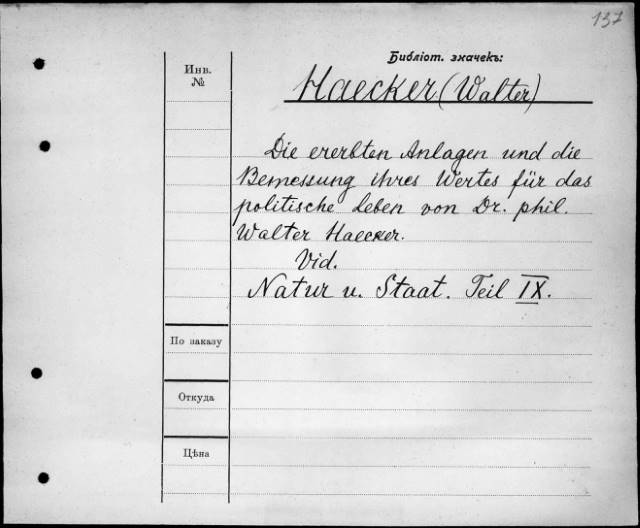 137
Библіот. значекъ:
Инв.
№
Haecker (Walter)
Die ererbten Anlagen und die
Bemessung ihres Wertes für das
politische Leben von Dr. phil.
Walter Haecker.
Vid.
Natur u. Staat. Teil IX.
По заказу
Откуда
Цѣна